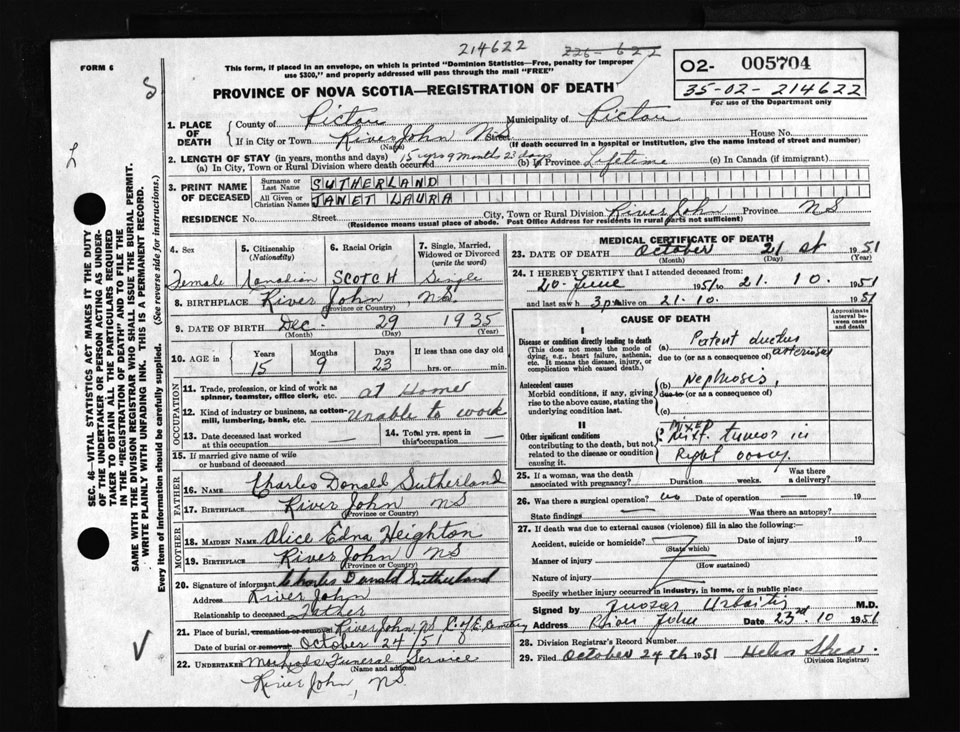 214622 226-622
FORM 6
This form, if placed in an envelope, on which is printed "Dominion Statistics—Free, penalty for improper
use $300," and properly addressed will pass through the mail "FREE"
PROVINCE OF NOVA SCOTIA—REGISTRATION OF DEATH
O2- 005704
35-02-214622
For use of the Department only
SEC. 46—VITAL STATISTICS ACT MAKES IT THE DUTY
OF THE UNDERTAKER OR PERSON ACTING AS UNDER-
TAKER TO OBTAIN ALL THE PARTICULARS REQUIRED
IN THE "REGISTRATION OF DEATH" AND TO FILE THE
SAME WITH THE DIVISION REGISTRAR WHO SHALL ISSUE THE BURIAL PERMIT.
WRITE PLAINLY WITH UNFADING INK. THIS IS A PERMANENT RECORD.
Every item of information should be carefully supplied. (See reverse for instructions.)
1. PLACE OF DEATH County of Pictou Municipality of Pictou
If in City or Town River John NS Street House No.
(Name) (If death occurred in a hospital or institution, give the name instead of street and number)
2. LENGTH OF STAY (in years, months and days)
(a) In City, Town or Rural Division where death occurred 15 yrs 9 months 23 days (b) In Province Lifetime (c) In Canada (if immigrant)
3. PRINT NAME OF DECEASED Surname or Last Name SUTHERLAND
All Given or Christian Names JANET LAURA
RESIDENCE No. Street City, Town or Rural Division River John Province NS
(Residence means usual place of abode. Post Office Address for residents in rural parts not sufficient)
4. Sex Female
5. Citizenship (Nationality) Canadian
6. Racial Origin SCOTCH
7. Single, Married, Widowed or Divorced (write the word) Single
8. BIRTHPLACE River John NS.
(Province or Country)
9. DATE OF BIRTH Dec. 29 1935
(Month) (Day) (Year)
10. AGE in Years Months Days If less than one day old
15 9 23 hrs. or min.
OCCUPATION
11. Trade, profession, or kind of work as spinner, teamster, office clerk, etc. at Home
12. Kind of industry or business, as cotton-mill, lumbering, bank, etc. Unable to work
13. Date deceased last worked at this occupation
14. Total yrs. spent in this occupation
15. If married give name of wife or husband of deceased
FATHER
16. NAME Charles Donald Sutherland
17. BIRTHPLACE River John NS
(Province or Country)
MOTHER
18. MAIDEN NAME Alice Edna Heighton
19. BIRTHPLACE River John NS
(Province or Country)
20. Signature of informant Charles Donald Sutherland
Address River John
Relationship to deceased Father
21. Place of burial, cremation or removal River John NS Cemetery
Date of burial or removal October 24 1951
22. UNDERTAKER Funeral Service
(Name and address)
River John, NS
MEDICAL CERTIFICATE OF DEATH
23. DATE OF DEATH October 21 st 1951
(Month) (Day) (Year)
24. I HEREBY CERTIFY that I attended deceased from:
20 June 1951 to 21. 10. 1951
and last saw h alive on 21.10. 1951
CAUSE OF DEATH
Approximate interval between onset and death
I
Disease or condition directly leading to death
(This does not mean the mode of dying, e.g., heart failure, asthenia, etc. It means the disease, injury, or complication which caused death.)
(a) Patent ductus arteriosus
due to (or as a consequence of)
Antecedent causes
Morbid conditions, if any, giving rise to the above cause, stating the underlying condition last.
(b) Nephrosis,
due to (or as a consequence of)
(c)
II
Other significant conditions contributing to the death, but not related to the disease or condition causing it.
MIXED tumor in
Right ovary.
25. If a woman, was the death associated with pregnancy? Duration weeks. Was there a delivery?
26. Was there a surgical operation? no Date of operation 19
State findings Was there an autopsy?
27. If death was due to external causes (violence) fill in also the following:—
Accident, suicide or homicide? Date of injury 19
(State which)
Manner of injury
(How sustained)
Nature of injury
Specify whether injury occurred in industry, in home, or in public place
Signed by M.D.
Address River John Date 23rd. 10 1951
28. Division Registrar's Record Number
29. Filed October 24th 1951 Helen Shea
(Division Registrar)